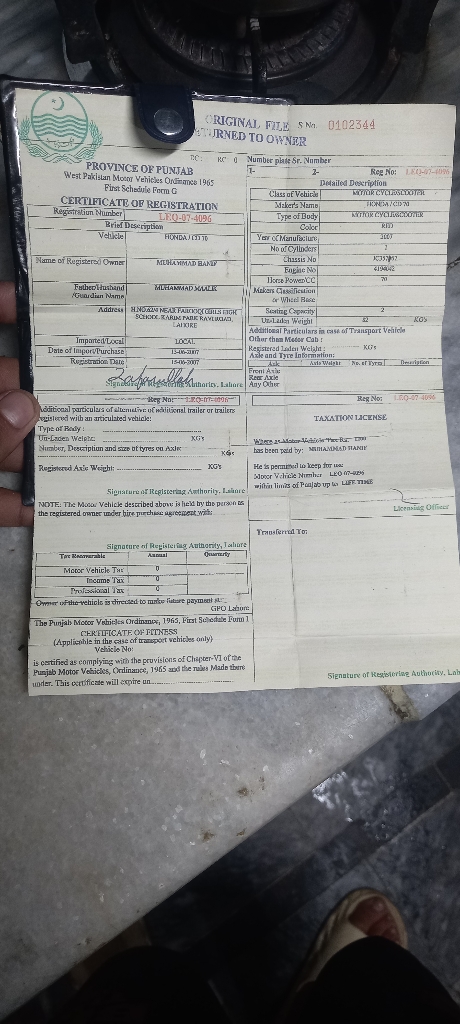 ORIGINAL FILE S No. 0102344
RETURNED TO OWNER
DC: KC 0
PROVINCE OF PUNJAB
West Pakistan Motor Vehicles Ordinance 1965
First Schedule Form G
CERTIFICATE OF REGISTRATION
Registration Number LEQ-07-4096
Brief Description
Vehicle HONDA / CD 70
Name of Registered Owner MUHAMMAD HANIF
Father/Husband /Guardian Name MUHAMMAD MAALIK
Address H.NO.624 NEAR FAROOQI GIRLS HIGH
SCHOOL KARIM PARK RAVI ROAD,
LAHORE
Imported/Local LOCAL
Date of Import/Purchase 15-06-2007
Registration Date 15-06-2007
Signature of Registering Authority, Lahore
Number plate Sr. Number
1- 2- Reg No: LEQ-07-4096
Detailed Description
Class of Vehicle MOTOR CYCLE/SCOOTER
Maker's Name HONDA / CD 70
Type of Body MOTOR CYCLE/SCOOTER
Color RED
Year of Manufacture 2007
No of Cylinders 1
Chassis No
Engine No 4194042
Horse Power/CC 70
Makers Classification
or Wheel Base
Seating Capacity 2
Un-Laden Weight 82 KG's
Additional Particulars in case of Transport Vehicle
Other than Motor Cab :
Registered Laden Weight : KG's
Axle and Tyre Information:
Axle Axle Weight No. of Tyres Description
Front Axle
Rear Axle
Any Other
Reg No: LEQ-07-4096
Additional particulars of alternative of additional trailer or trailers
registered with an articulated vehicle:
Type of Body :
Un-Laden Weight: KG's
Number, Description and size of tyres on Axle:
KGs
Registered Axle Weight: KG's
Signature of Registering Authority, Lahore
NOTE: The Motor Vehicle described above is held by the person as
the registered owner under hire purchase agreement with:
Signature of Registering Authority, Lahore
Tax Recoverable Annual Quarterly
Motor Vehicle Tax 0
Income Tax 0
Professional Tax 0
Owner of the vehicle is directed to make future payment at:
GPO Lahore
The Punjab Motor Vehicles Ordinance, 1965, First Schedule Form I
CERTIFICATE OF FITNESS
(Applicable in the case of transport vehicles only)
Vehicle No:
is certified as complying with the provisions of Chapter-VI of the
Punjab Motor Vehicles, Ordinance, 1965 and the rules Made there
under. This certificate will expire on
Reg No: LEQ-07-4096
TAXATION LICENSE
Where as Motor Vehicle Tax Rs:
has been paid by: MUHAMMAD HANIF
He is permitted to keep for use
Motor Vehicle Number LEQ 07-4096
within limits of Punjab up to LIFE TIME
Licensing Officer
Transferred To:
Signature of Registering Authority, Lah